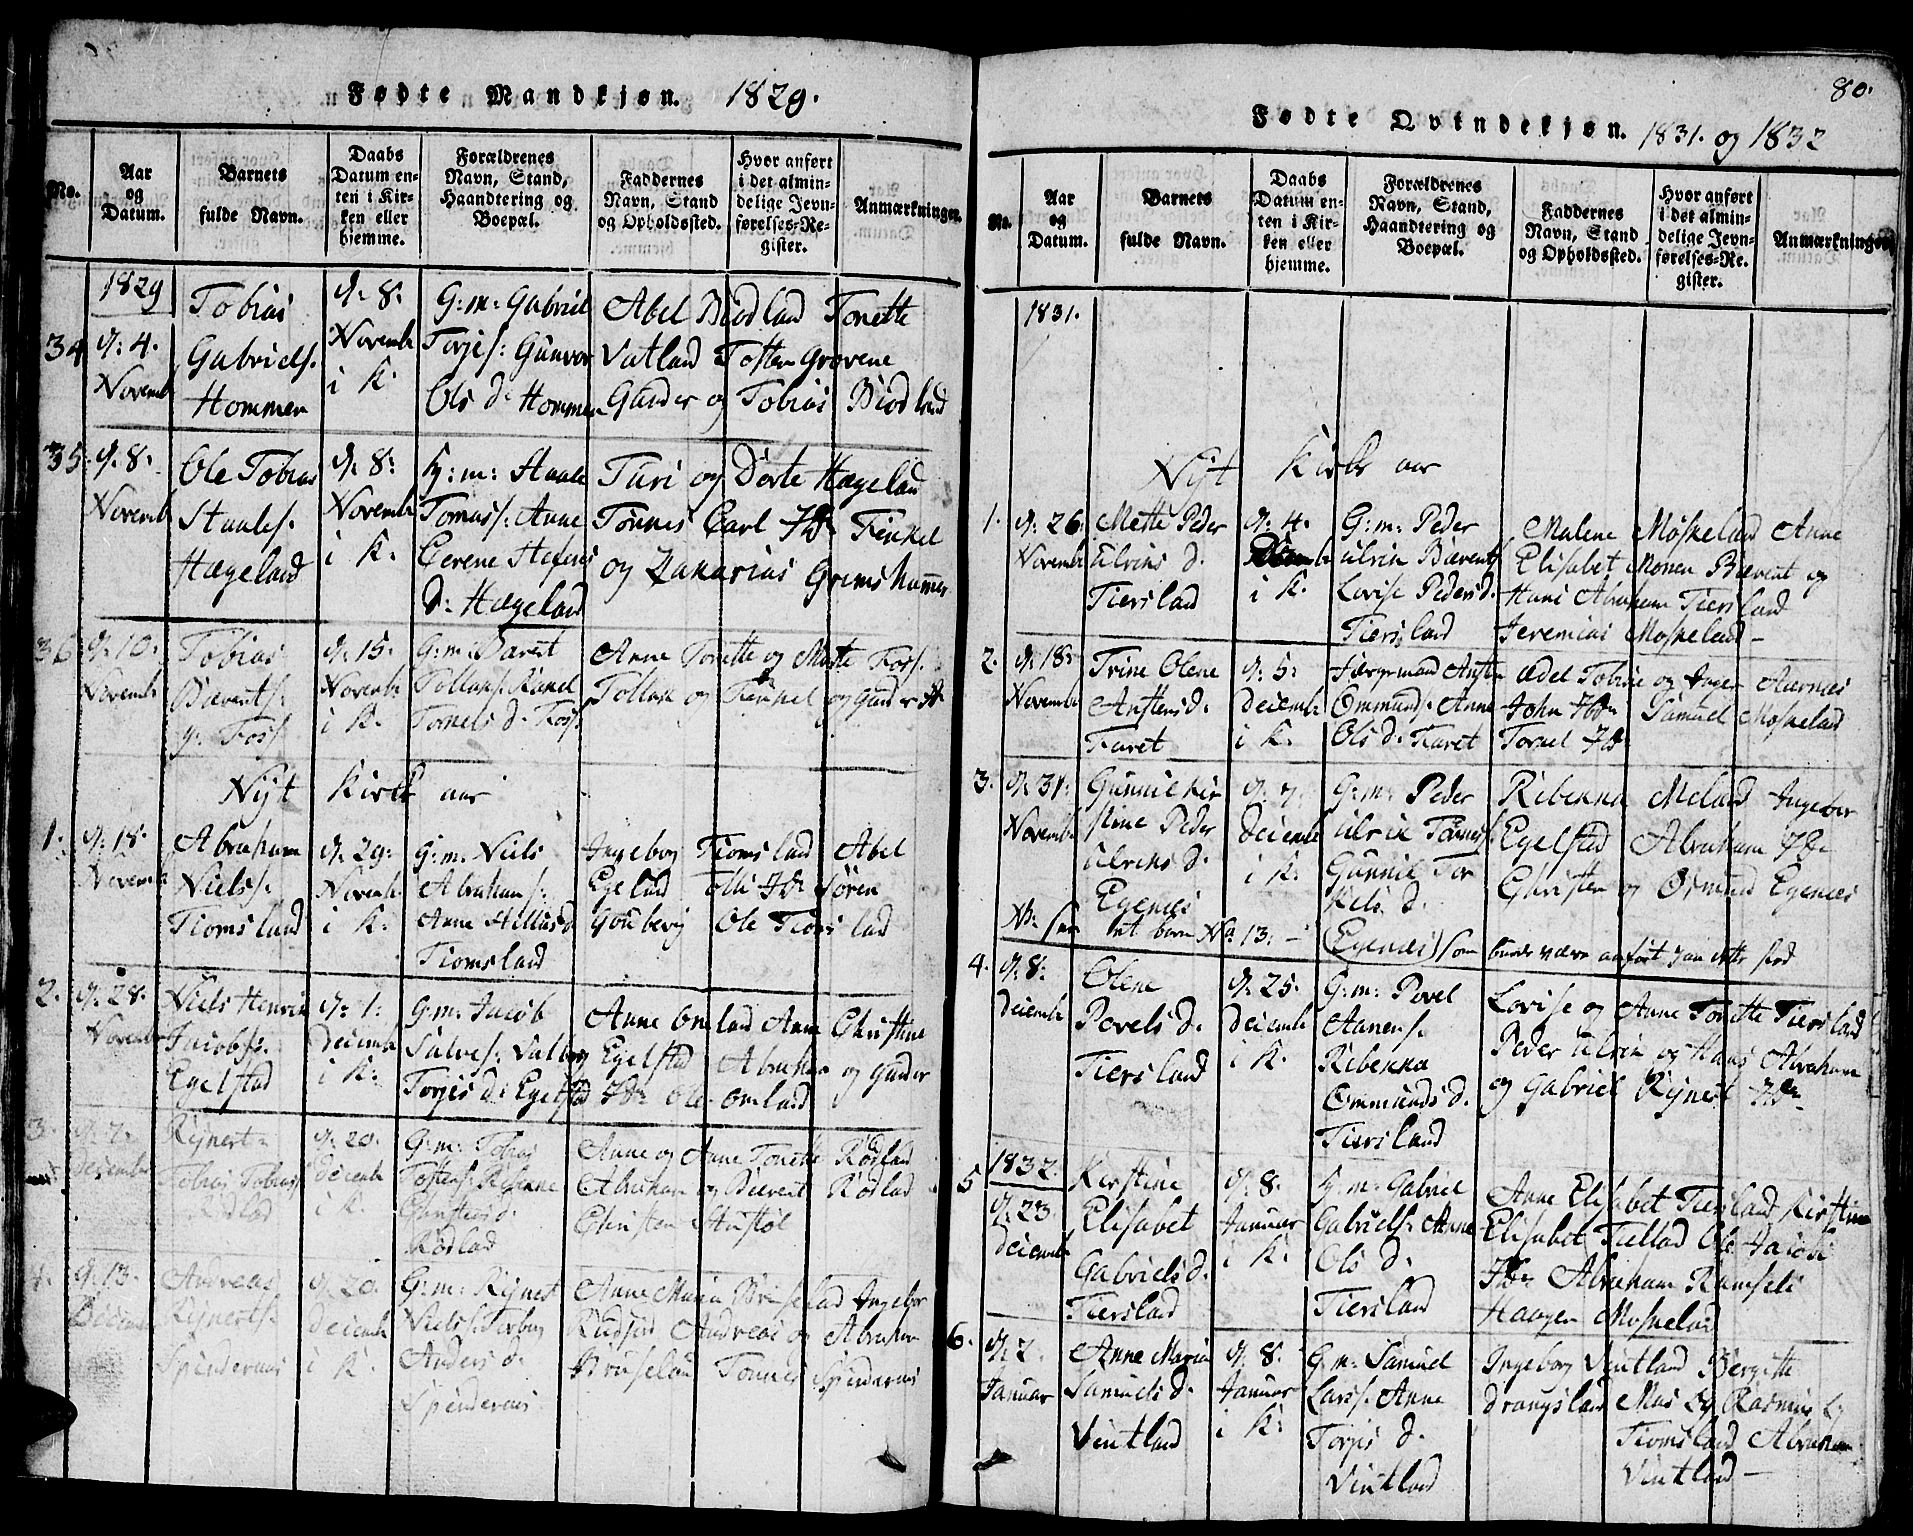 Fødte Mandkjøn. 1829.
No.
Aar
og
Datum.
Barnets
fulde Navn.
Daabs
Datum en-
ten i Kir-
ken eller
hjemme.
Forældrenes
Navn, Stand,
Haandtering og
Boepæl.
Faddernes
Navn, Stand
og Opholdssted.
Hvor anført
i det almin-
delige Jevn-
førelses-Re-
gister.
Anmærkninger.
1829
34
d: 4.
Novemb
Tobias
Gabriels.
Hommen
d: 8.
Novembr
i K.
G:m: Gabriel
Torjis: Gunvor
Ols d: Hommen
Abel Biodland Tonette
Vatland Tosten Grovene
Gunder og Tobias Biodland
35.
d. 8.
Novemb
Ole Tobias
Staales.
Hægeland
d: 8:
Novembr
i K.
h:m: Staale
Tomas: Anne
Cerene Stefens
d: Hægeland
Turi og Dorte Hægelan
Tønnes Carl Ibm Tienkel
og Zakarias Grimshammer
36
d: 10.
Novembr
Tobias
Bærents.
y. Foss.
d: 15.
Novembr
i K.
G:m: Barent
Tollags. Rakel
Tomels d. Foss
Anne Tonette og Mette Foss.
Tollak og Tienkel og Gunder
Nyt Kirke aar
1.
d. 18.
Novemb
Abraham
Niels.
Tiomsland
d: 29:
Novembr
i K.
G:m: Niels
Abrahams:
Anne
Tiomsland
Ingebog Tiomsland Abel
Egeland Tolli Ibm Søren
Ole Tiomsland
2.
d: 28.
Novembr
Niels Henrik
Jacobs.
Egelstad
d: 1.
Decembr
i K.
G:m: Jacob
Salves: Salbog
Torjis d: Egelstad
Anne Omland Anne Christine
Egelstad Abraham og Gunder
Ibm Ole Omland
3.
d: 7.
Decembr
Rijnert
Tobias Tobias
Rødlad
d: 20.
Decembr
i K.
G:m: Tobias
Tostens. Rebenne
Rødlad
Anne og Anne Tonette Rødland
Abraham og Bærent Rødlad
Christen
4.
d: 13.
Decemb
Andreas
Rijnerts.
Spindernes
d: 20.
Decembr
i K.
G:m: Rijnet
Niels. Torbog
Anders d.
Spinderneis
Anne Maria Bruseland Ingebor
Andreas og Abraham
Bruseland Tønnes Spinderneis
80.
Fødte Qvindekjøn. 1831. og 1832
No.
Aar
og
Datum.
Barnets
fulde Navn.
Daabs
Datum en-
ten i Kir-
ken eller
hjemme.
Forældrenes
Navn, Stand,
Haandtering og
Boepæl.
Faddernes
Navn, Stand
og Opholdssted.
Hvor anført
i det almin-
delige Jevn-
førelses-Re-
gister.
Anmærkninger
1831.
Nyt Kirke aar
1.
d: 26.
Novembr
Mette Peder
Ulriks d.
Tiersland
d: 4.
i K.
G:m: Peder
Ulrik Bærents
Lovise Peders d.
Tiersland
Malene Moskeland Anne
Elisabet Monen Bærent og
Hans Abraham Tiersland
Jeremias Moskeland
2.
d: 18.
Novembr
Trine Olene
Anstens d.
Faret
d: 5.
Decembr
i K.
Ansten
Ommunds. Anne
Ols d. Faret
Ædel Tobine og Inger Aernes
John Ibm Samuel Moskeland
Tomel Ibm
3.
d: 31.
Novembr
Gunnil Kir
stine Peder
Ulriks d.
Egenes
d: 7.
Decembr
i K.
G:m: Peder
Ulrik Tønnes.
Gunnil Tor
kels d.
Egenes
Ribekka Meland Ingebor
Egelstad Abraham Ibm
Christen og Osmund Egenæs
NB: barn No. 13. som burde være anført paa dette sted
4.
d: 8.
Decembr
Olene
Povels d.
Tiersland
d: 25.
Decembr
i K.
G:m: Povel
Aanens.
Ribekka
Ommunds d.
Tiersland
Lovise og Anne Tonette Tiersland
Peder Ulrik og Hans Abraham
og Gabriel Rijnert Ibm
1832.
5
d: 23
Decembr
Kirstine
Elisabet
Gabriels d.
Tiersland
d: 8.
Januar
i K.
h:m: Gabriel
Gabriels. Anne
Ols d.
Tiersland
Anne Elisabet Tiersland Kirstine
Elisabet Tiellad Ole Jacob
Ibm Abraham Ramseli
Haagen Moskeland
6.
d: 2.
Januar
Anne Maria
Samuels d.
Vintland
d: 8.
Januar
i K.
G:m: Samuel
Lars. Anne
Torjis d.
Vintland
Ingeborg Vintland Bergitte
Drangsland Mas og Rasmus
Tiomsland Abraham
Vintland